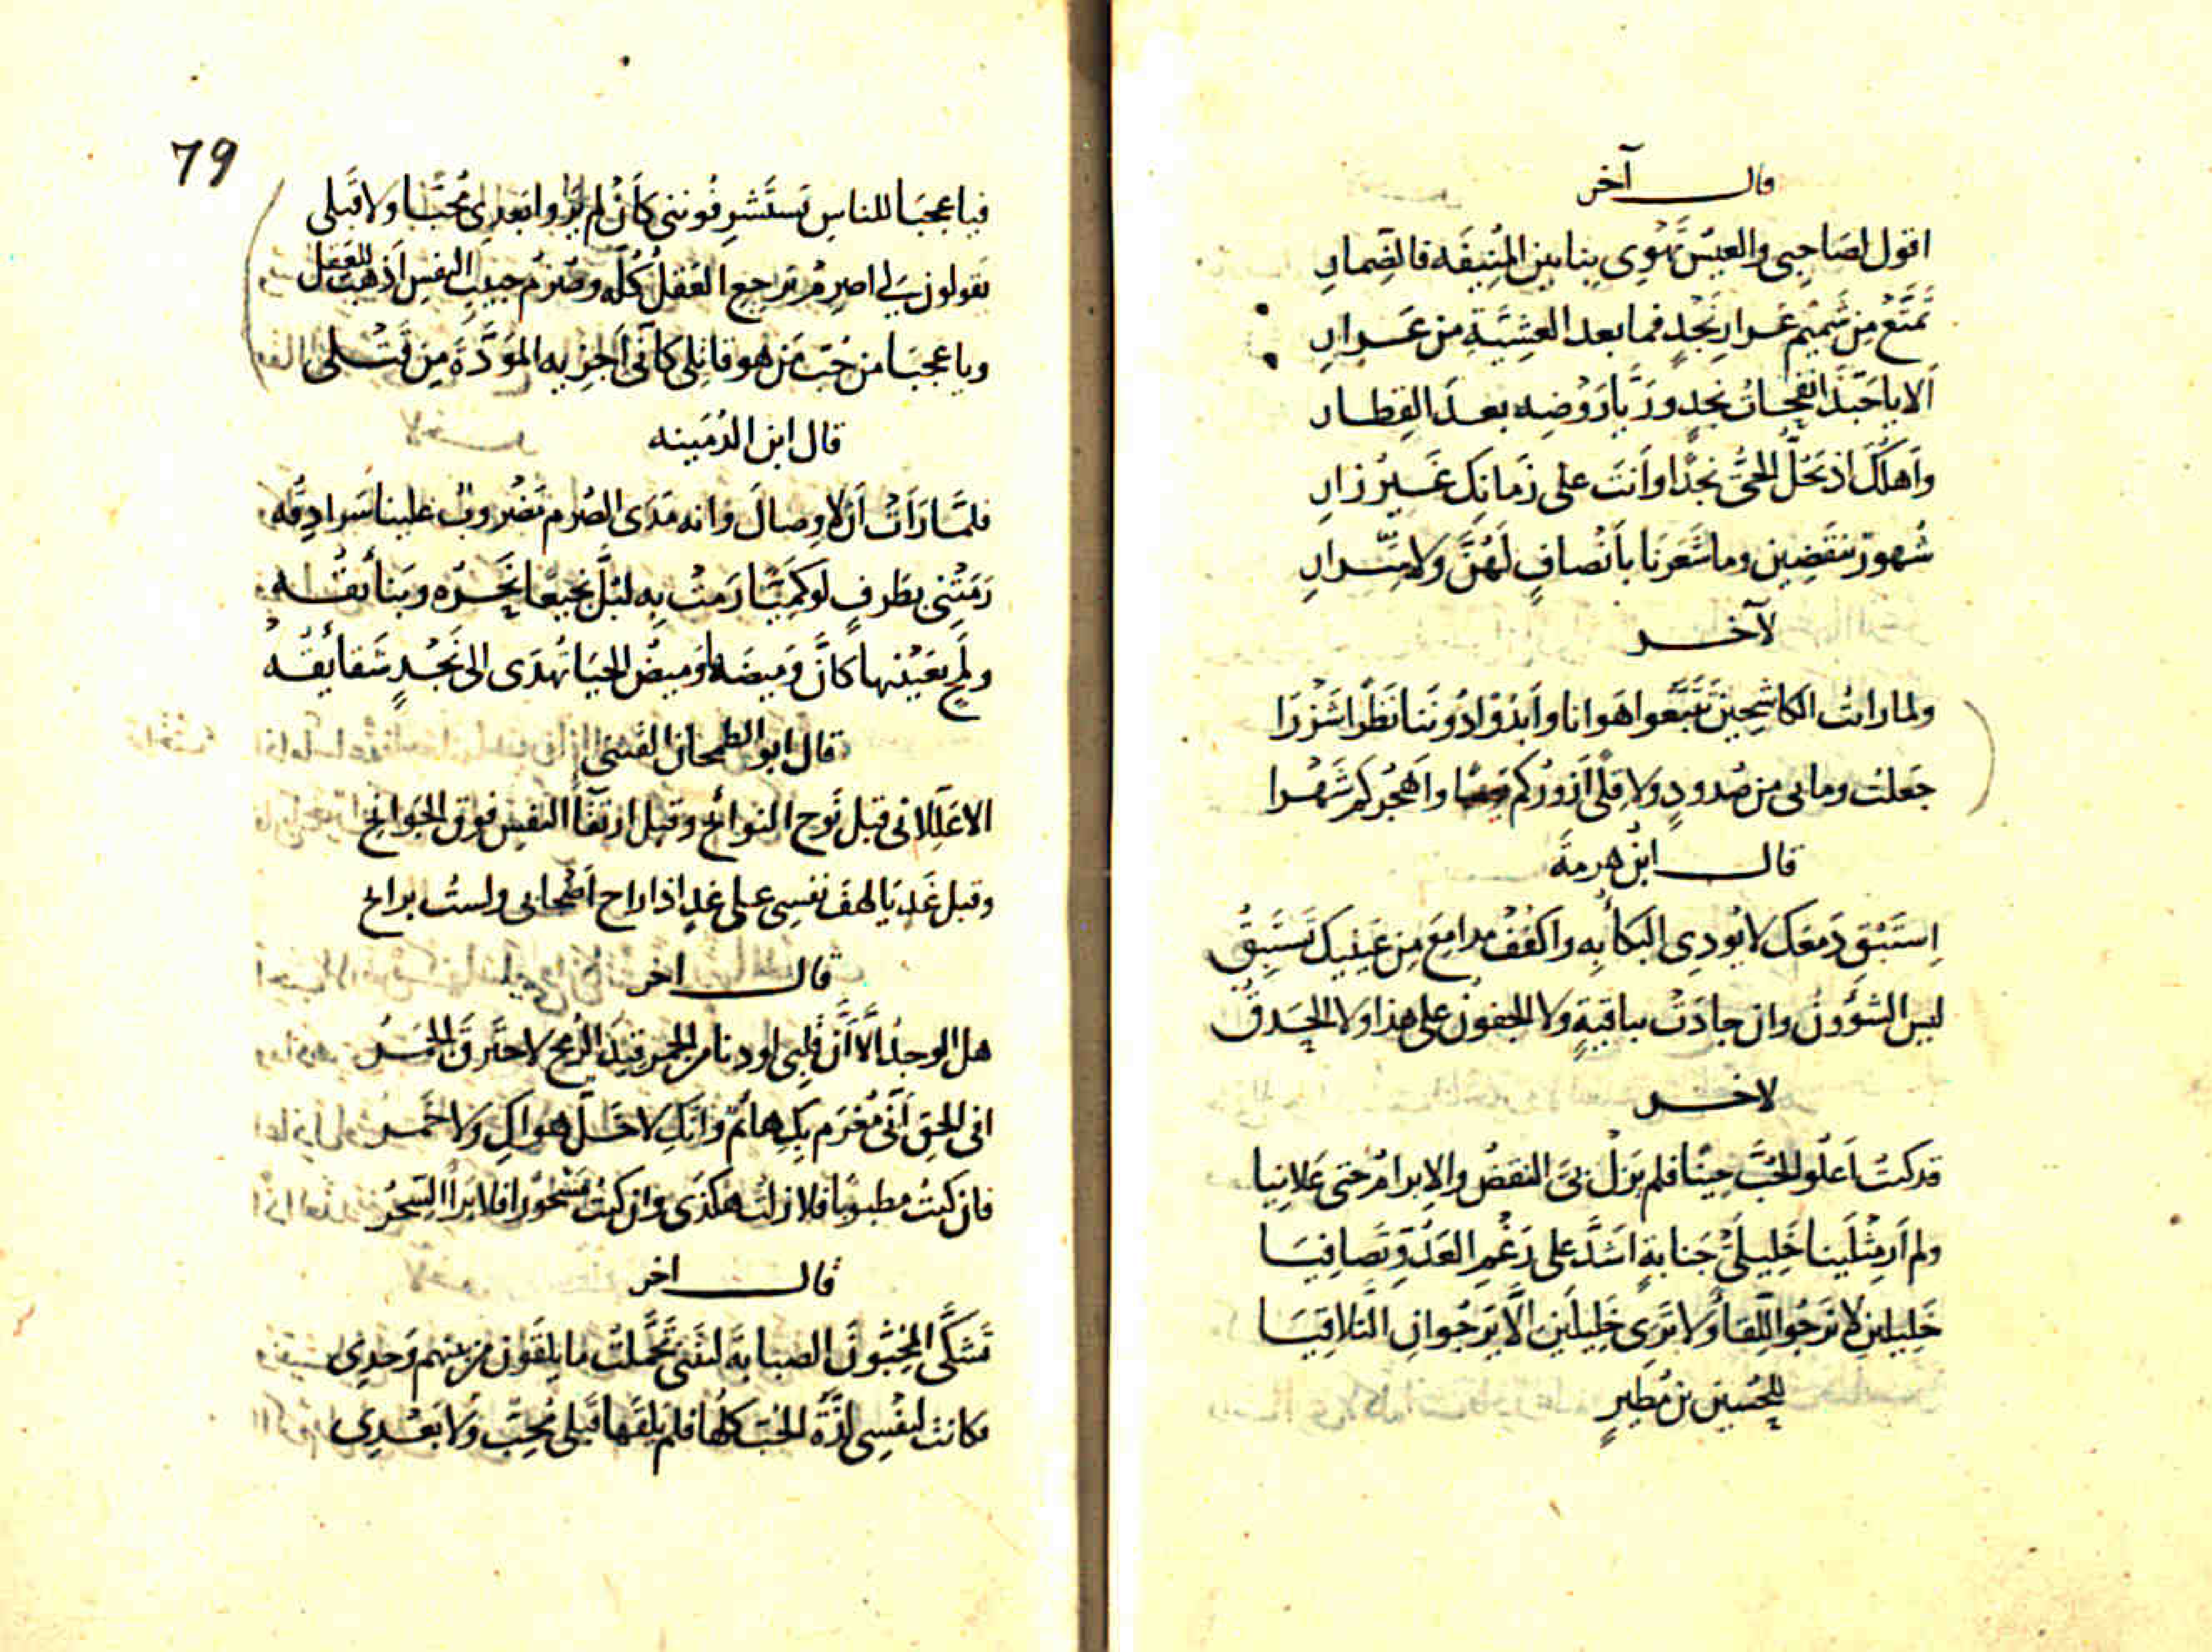 قال آخر
اقول لصاحبى والعيسُ تهوى بنا بين المُنِيفَه فالضِمارِ
تَمَتَّع مِن شَميم عَرارِ نَجْدٍ فما بعد العَشِيَّةِ من عَرارِ
اَلا يا حَبَّذا نفحاتُ نجدٍ ورَيّا رَوْضِه بعدَ القِطار
واَهلُكَ اذ يَحُلُّ الحىُّ نجدًا واَنتَ على زَمانِكَ غَيرُ زارِ
شُهورٌ ينقَضِين وما شَعَرنا باَنصافٍ لَهُنَّ ولا سِرارِ
لآخر
ولما رايتُ الكاشِحِينَ تَتَبَّعوا هَوانا واَبدَوْا دُونَنا نَظَرًا شَزْرَا
جَعلتُ ومابى من صُدودٍ ولا قِلًى اَزورُكم واَهجُركم شَهْرا
قال ابنُ هرمةَ
اِستَبْقِ دَمعَك لا يُودِى البكأُ بِه واكفُفْ مدامِعَ مِن عَينيك تَستَبِقُ
ليس الشؤُونُ وان جادَتْ بباقيةٍ ولا الجفونُ على هذا ولا الحَدقُ
لاخر
قد كنتُ اَعلُو الحُبَّ حِينًا فلم يَزَلْ بىَ النقضُ والاِبرامُ حتى عَلانِيا
ولم اَرَ مِثلَينا خَلِيلَىْ جَنابةٍ اشَدَّ على رَغْمِ العَدُوِّ تَصافِيَا
خَليلينِ لا نَرجُو اللِقاَ ولا نَرى خَلِيلَينِ اِلّا يَرجُوانِ التَلاقِيَا
للحُسين بن مُطَيرٍ
79
فيا عجبَا للناسِ يَستَشرِفُوننى كَاَن لم يَرَوا بَعدِى مُحبًّا ولا قَبلى
يقولون لى اصرِمْ يَرجعِ العَقلُ كُلُّه وصُرْمُ حبيبِ النفسِ اَذهَبُ للعقل
ويا عجبَا من حُبِّ مَن هو قاتِلى كاَنّى اَجزِيه المَوَدَّةَ مِن قَتلى
قال ابن الدُمَينه
فلمَّا رَاَتْ اَن لا وِصالَ وانه مَدَى الصُرم مَضْروبٌ علينا سَرادِقُه
رَمَتْنى بطَرفٍ لو كَمِيًّا رَمَتْ بِه لبُلَّ نجيعًا نَحرُه وبَنائقُه
ولَمحٍ بعَيْنيها كاَنَّ وَميضَه وَميضُ الحَيا تُهدَى الى نَجْدٍ شَقائِقُه
قال ابو الطمحان القينى
الا عَلِّلانى قبل نَوح النوائح وقبل ارتقأ النفس فوق الجوانح
وقبل غَدٍ يا لهفَ نفسى على غدٍ اذا راح اَصْحابى ولستُ برائح
قال اخر
هل الوجدُ الّا اَنَّ قلبى لو دنا من الجمر قِيدَ الرُمح لاحتَرَق الجمرُ
افى الحق اَنّى مُغرَم بكِ هائمٌ واَنكِ لا خَلٌّ هواكِ ولا خَمر
فان كنتُ مطبوبًا فلا زلتُ هكذى وان كنتُ مَسْحورًا فلا بَرأَ السِحرُ
قال اخر
تَشكَّى المُحِبُّونَ الصبابةَ ليتَنى تَحَمَّلتُ ما يلقَون من بينهم وَحدِى
فكانت لنفسِى لذَّةُ الحُبِّ كلُّها فلم يَلقَها قَبلى مُحِبٌّ ولا بَعْدِى